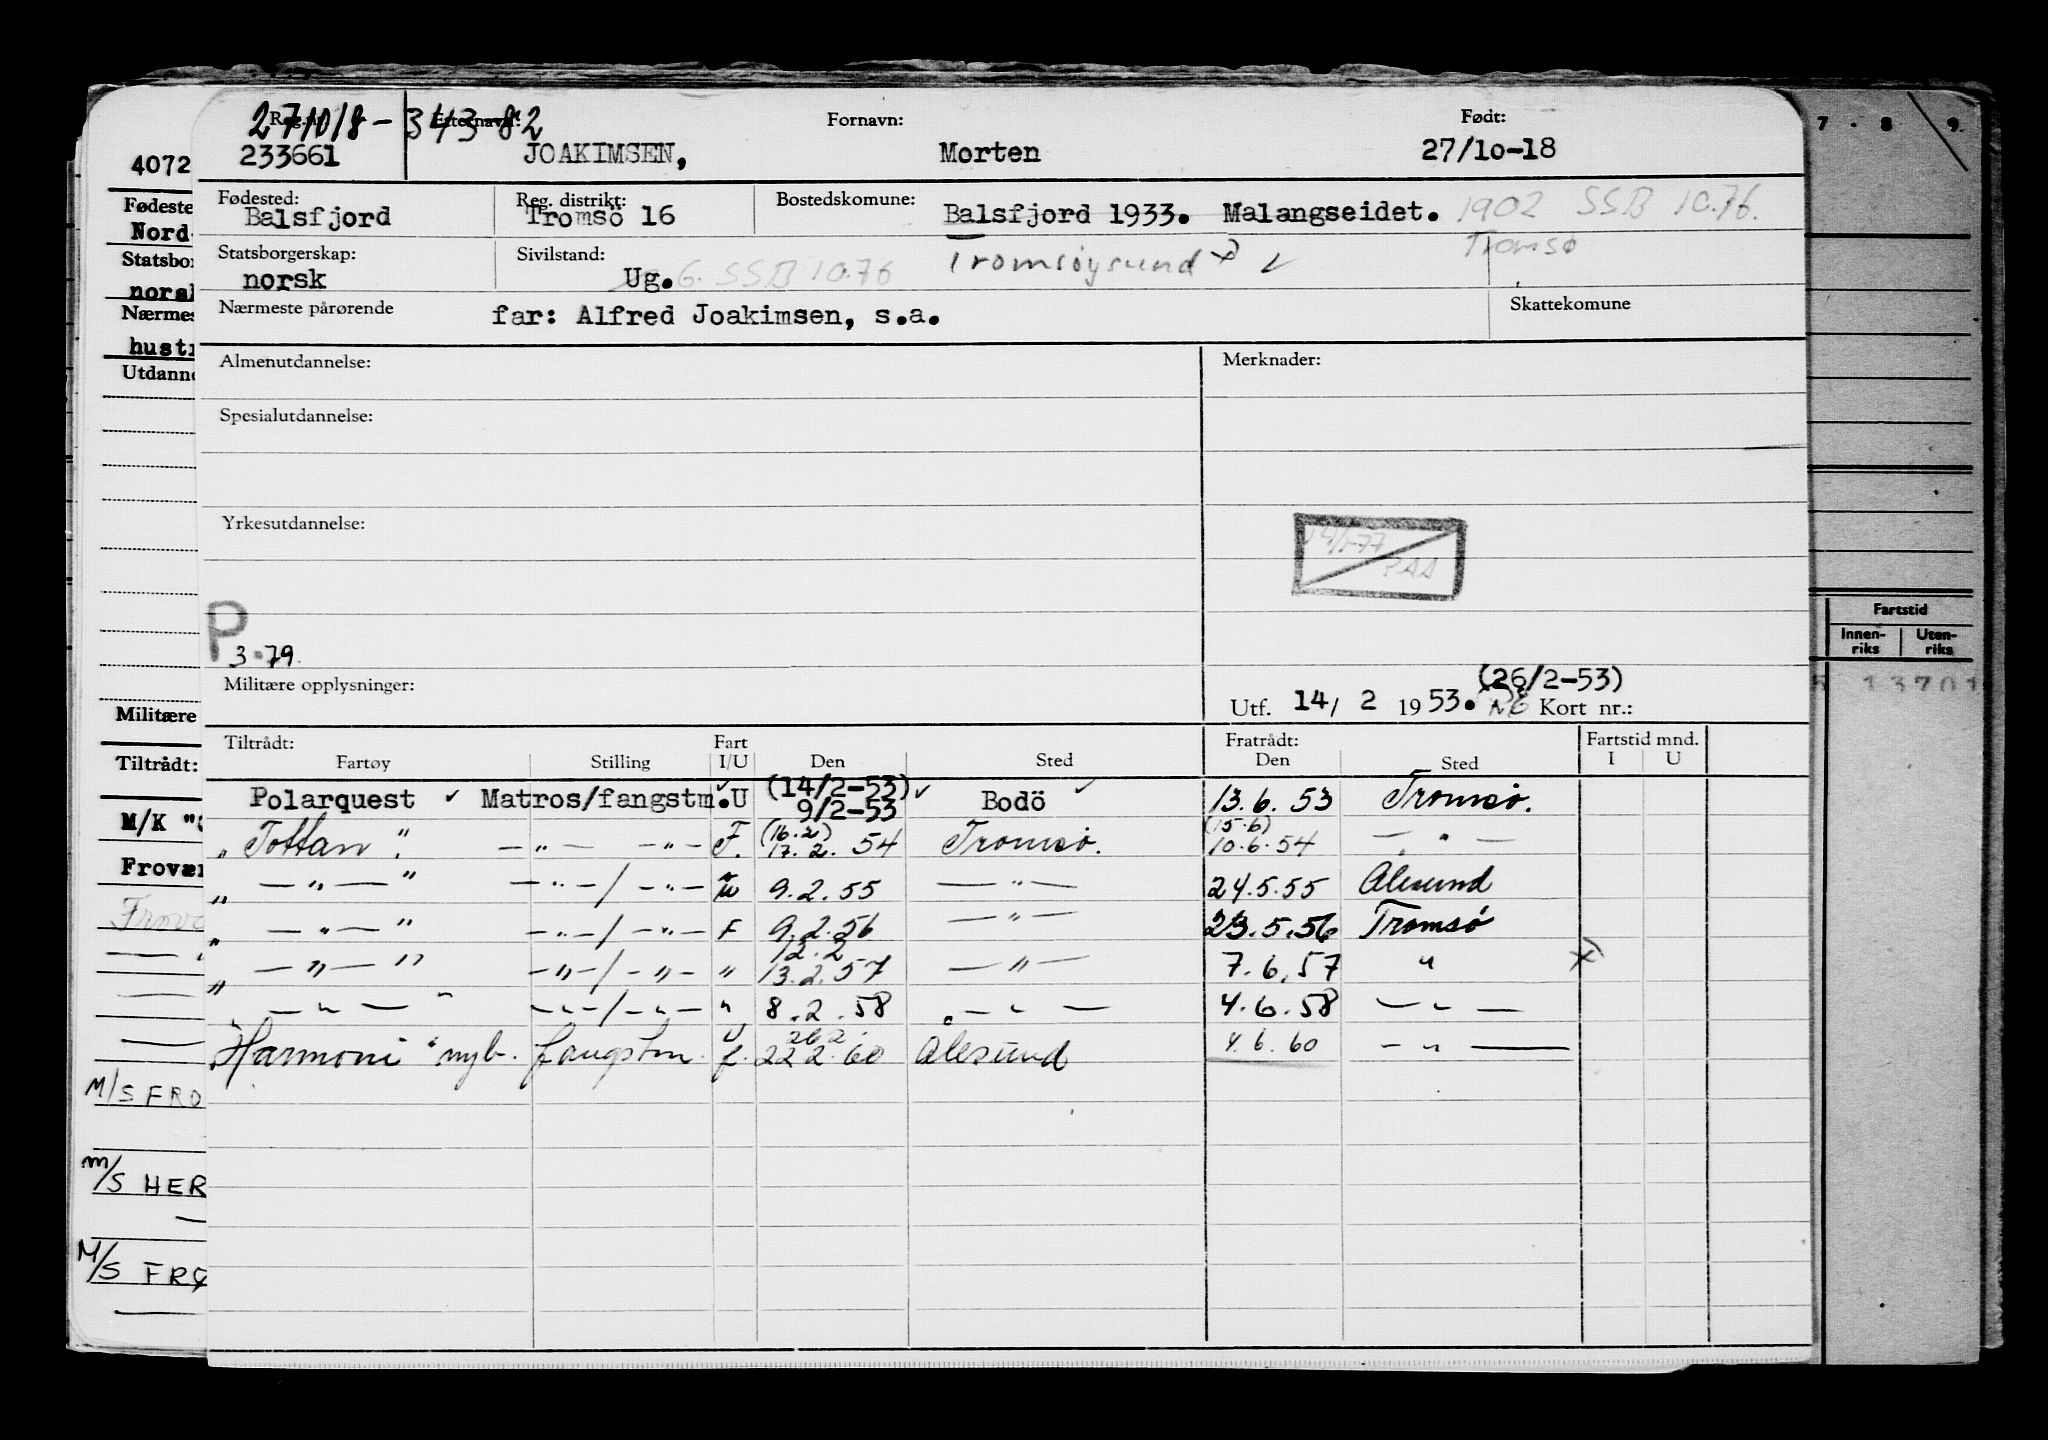 271018-34382
Reg.nr. Etternavn: Fornavn: Født:
4072 233661 JOAKIMSEN, Morten 27/10-18
7 - 8 9.
Fødested: Reg. distrikt: Bostedskomune:
Balsfjord Tromsö 16 Balsfjord 1933. Malangseidet. 1902 SSB 10.76.
Statsborgerskap: Sivilstand: Tromsøysund Tromsø
norsk Ug. G. SSB 10.76
Nærmeste pårørende far: Alfred Joakimsen, s.a. Skattekomune
Almenutdannelse: Merknader:
Spesialutdannelse:
Yrkesutdannelse:
P
3.79.
Militære opplysninger: (26/2-53)
Utf. 14/ 2 1953. Kort nr.:
Tiltrådt: Fart Fratrådt: Fartstid mnd.
Fartøy Stilling I/U Den Sted Den Sted I U
Polarquest Matros/fangstm. U (14/2-53) 9/2-53 Bodö 13.6.53 Tromsø.
" Tottan". — " — — " — F. (16.2) 17.2.54 Tromsø. (15.6) 10.6.54 — " —
" — " — " — " — / — " — 9.2.55 — " — 24.5.55 Alesund
" — " — " — " — / — " — F 9.2.56 — " — 23.5.56 Tromsø
" — " — " — " — / — " — " 12.2 13.2.57 — " — 7.6.57 " x)
" — " — " — " — / — " — " 8.2.58 — " — 4.6.58 — " —
"Harmoni" nyb. fangstm. f. 26.2 22.2.60 Alesund 4.6.60 — " —
Fødeste
Nord
Statsbor
norsk
Nærmes
hust
Utdanne
Militære
Tiltrådt:
M/K "
Frovær
M/S FRO
M/S HER
M/S FRØ
Fartstid
Innen-
riks
Uten-
riks
13701